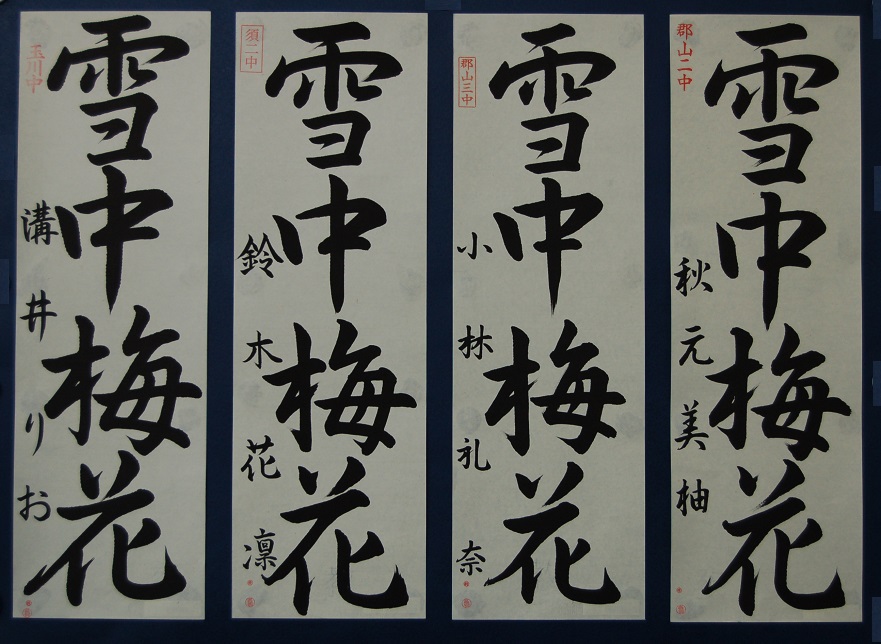 郡山二中
雪中梅花
秋元美柚
郡山三中
雪中梅花
小林礼奈
須二中
雪中梅花
鈴木花凛
玉川中
雪中梅花
溝井りお